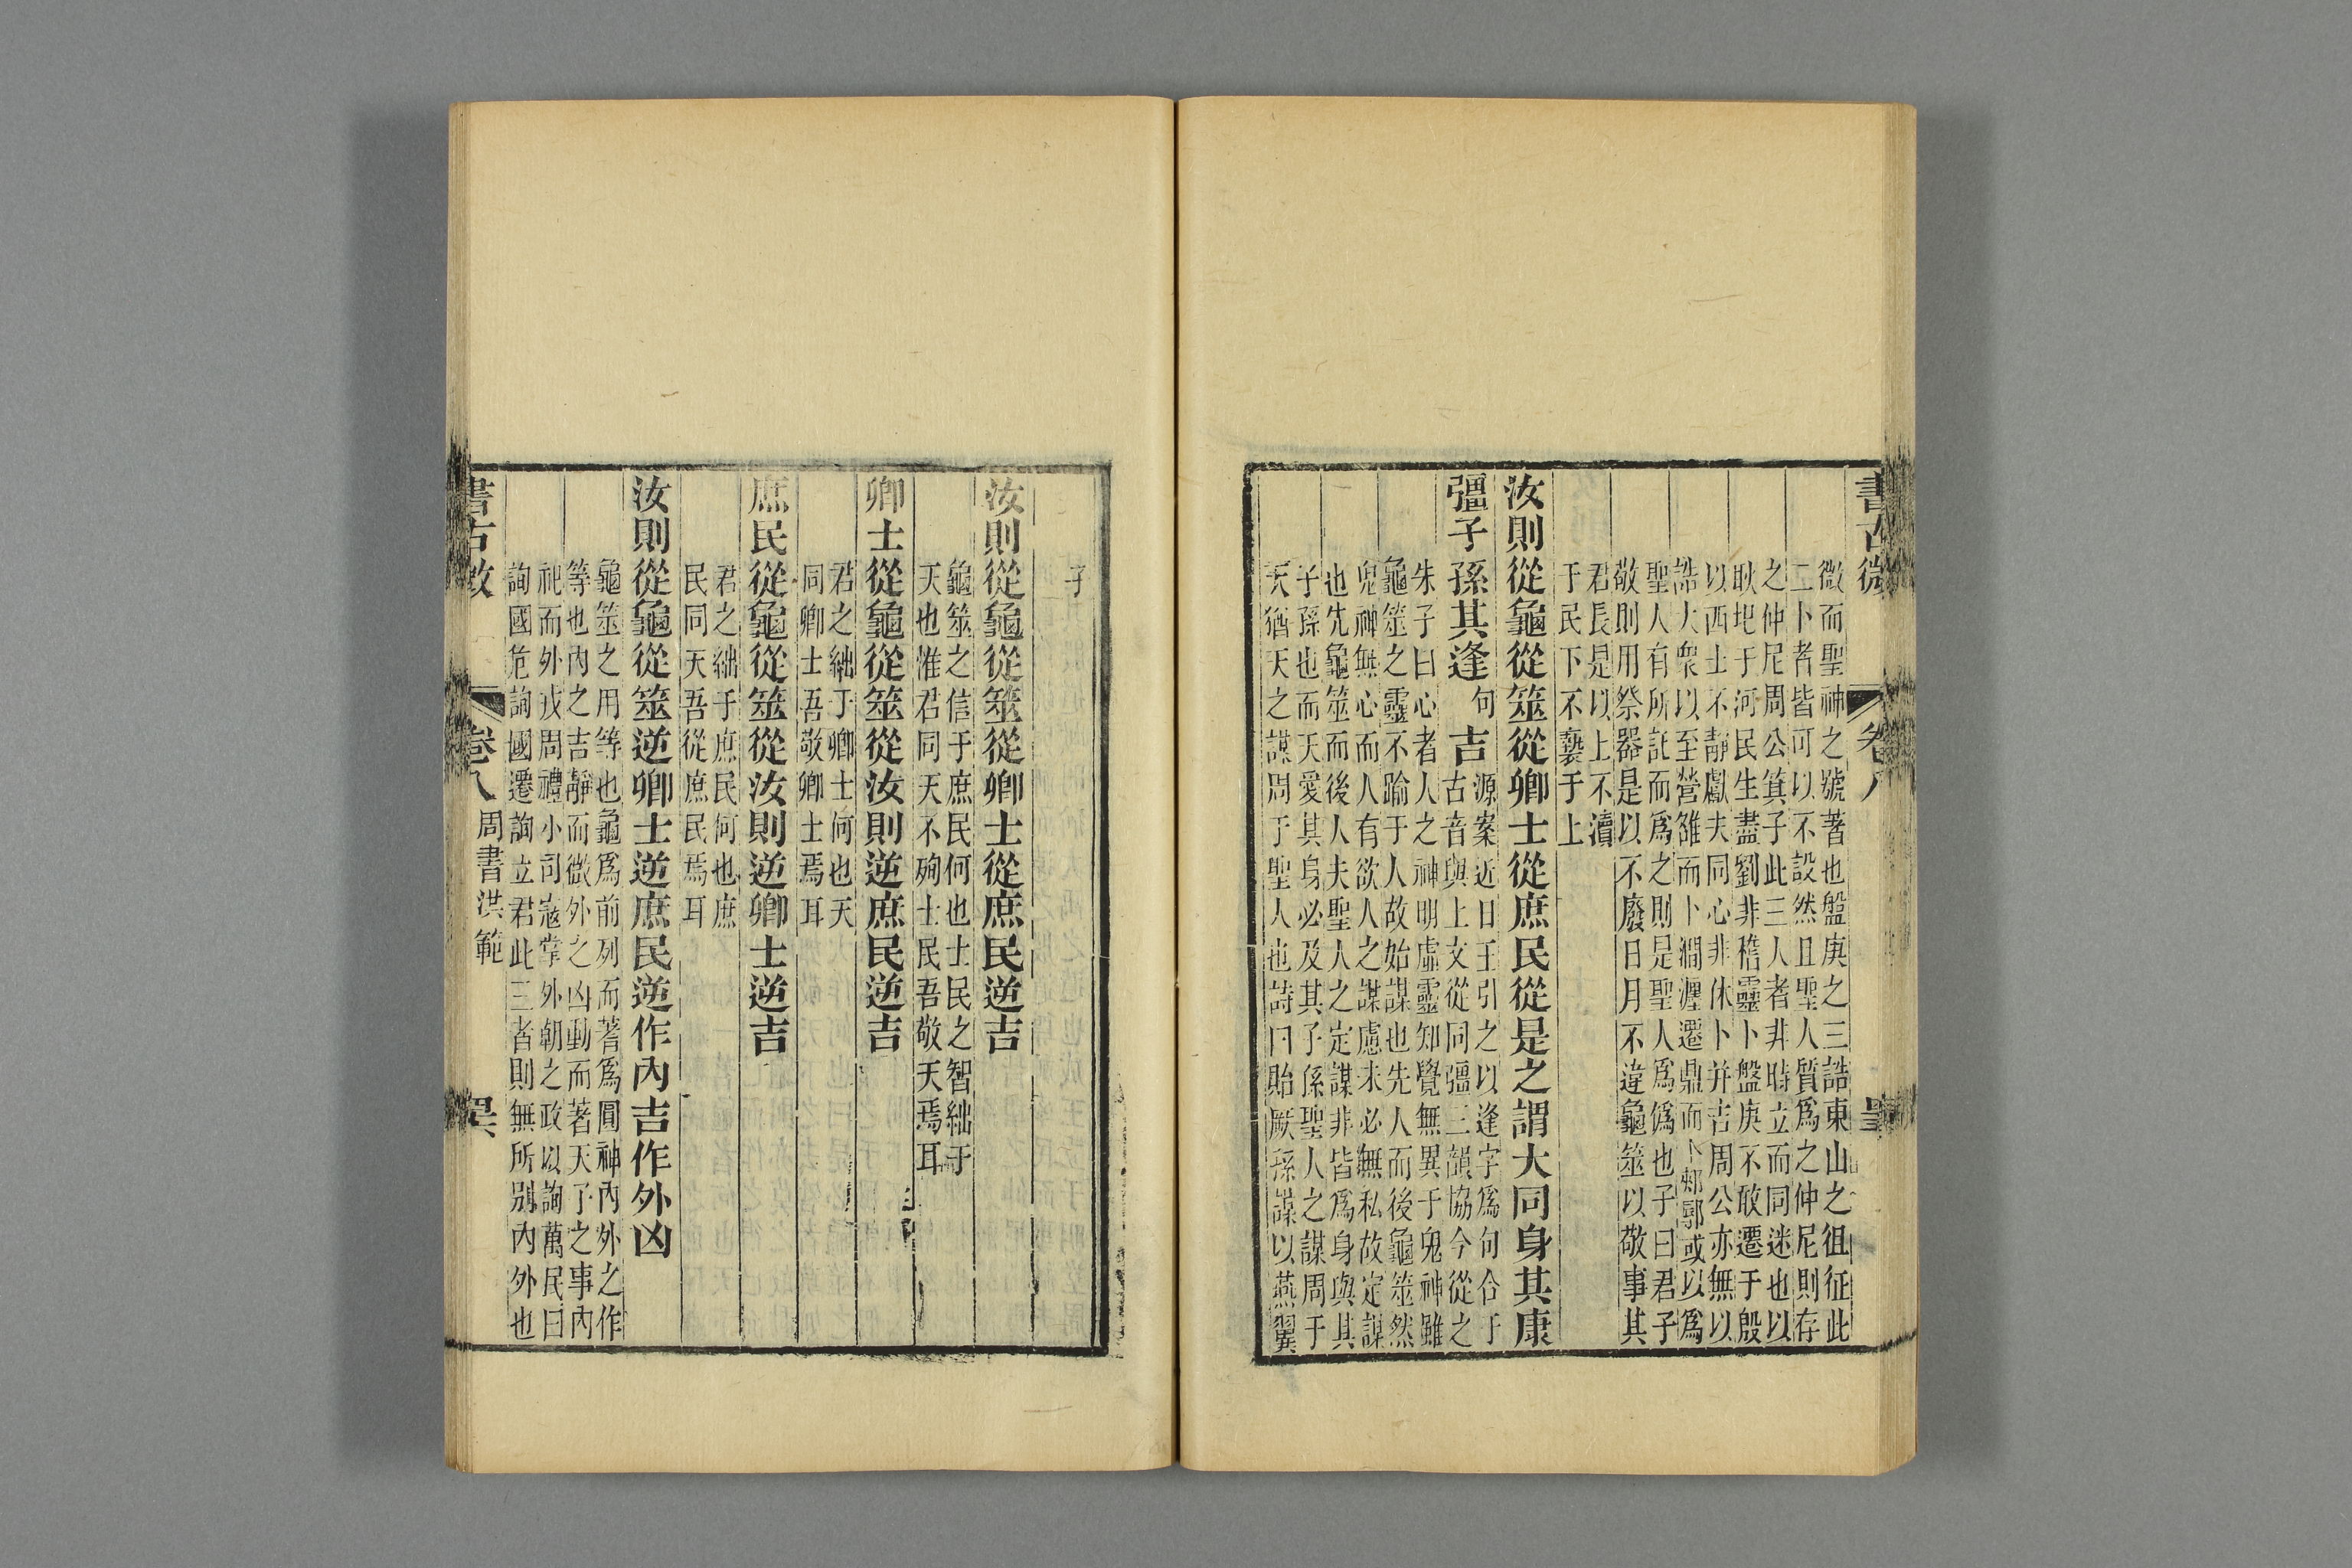 書古微
卷八
微而聖神之號著也盤庚之三誥東山之徂征此
二卜者皆可以不設然且聖人質爲之仲尼則存
之仲尼周公箕子此三人者非時立而同迷也以
耿圯于河民生盡劉非稽靈卜盤庚不敢遷于殷
以西土不靜獻夫同心非休卜并吉周公亦無以
誥大衆以至營雒而卜澗瀍遷鼎而卜郟鄏或以爲
聖人有所託而爲之則是聖人爲僞也子曰君子
敬則用祭器是以不廢日月不違龜筮以敬事其
君長是以上不瀆
于民下不褻于上
汝則從龜從筮從卿士從庶民從是之謂大同身其康
彊子孫其逢句吉
源案近日王引之以逢字爲句合于
古音與上文從同彊三韻協今從之
朱子曰心者人之神明虛靈知覺無異于鬼神雖
龜筮之靈不踰于人故始謀也先人而後龜筮然
鬼神無心而人有欲人之謀慮未必無私故定謀
也先龜筮而後人夫聖人之定謀非皆爲身與其
子孫也而天愛其身必及其子孫聖人之謀周于
天猶天之謀周于聖人也詩曰貽厥孫謀以燕翼
子
汝則從龜從筮從卿士從庶民逆吉
龜筮之信于庶民何也士民之智絀于
天也惟君同天不殉士民吾敬天焉耳
卿士從龜從筮從汝則逆庶民逆吉
君之絀于卿士何也天
同卿士吾敬卿士焉耳
庶民從龜從筮從汝則逆卿士逆吉
君之絀于庶民何也庶
民同天吾從庶民焉耳
汝則從龜從筮逆卿士逆庶民逆作內吉作外凶
龜筮之用等也龜爲前列而蓍爲圓神內外之作
等也內之吉靜而微外之凶動而著天子之事內
祀而外戎周禮小司寇掌外朝之政以詢萬民曰
詢國危詢國遷詢立君此三者則無所別內外也
書古微
卷八
周書洪範